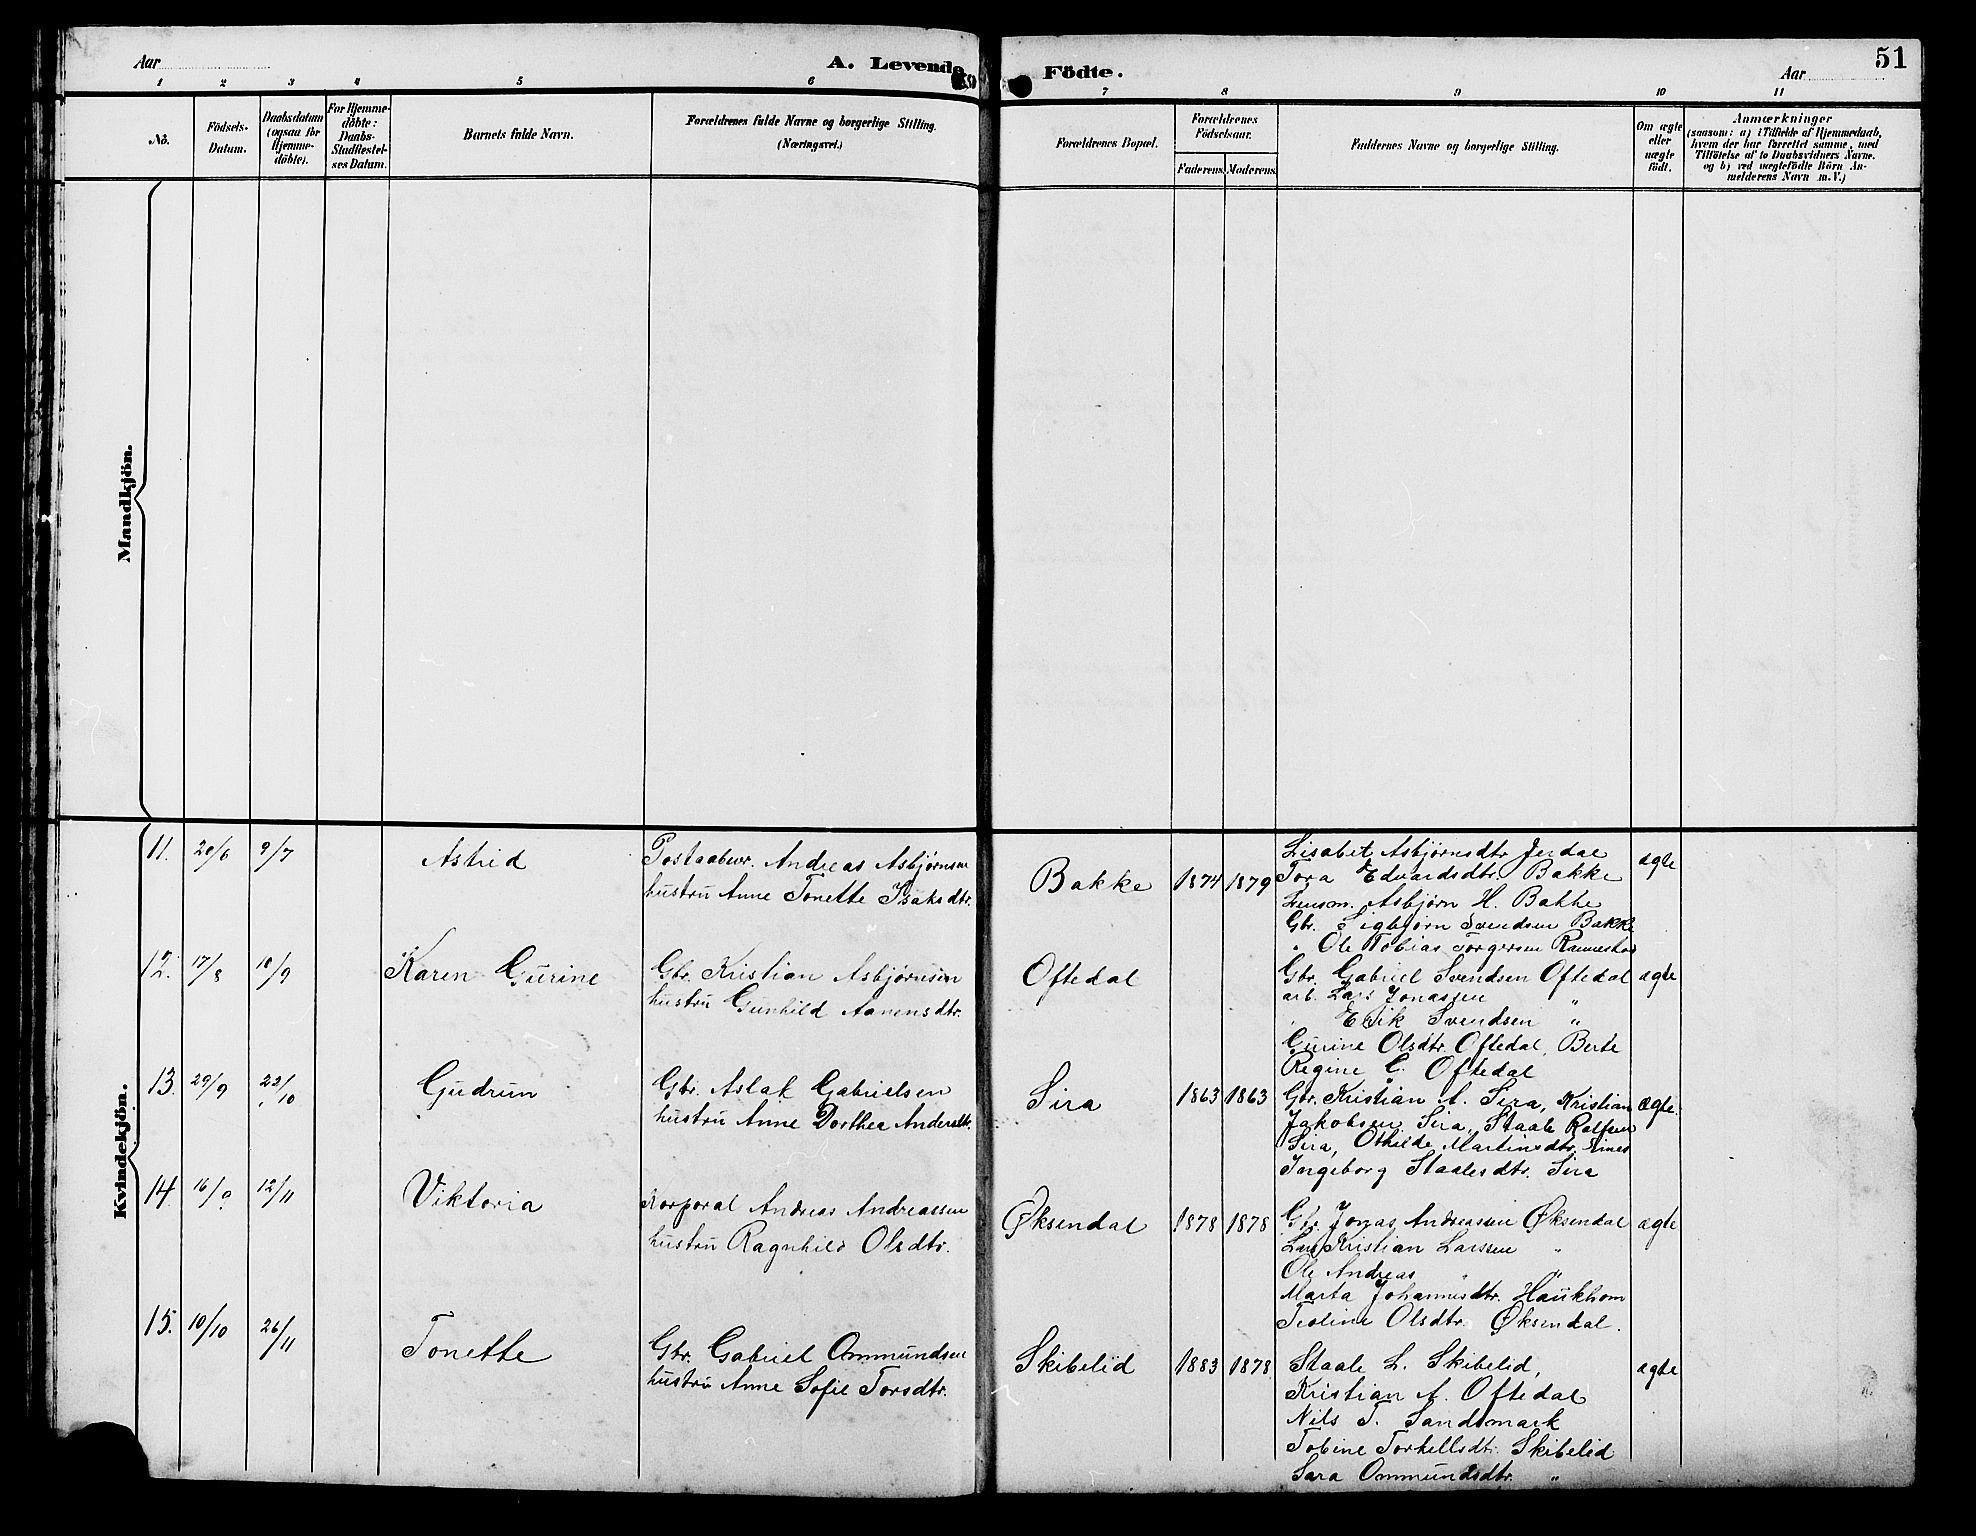 51
Aar
A. Levende Födte.
Aar
1 2 3 4 5 6 7 8 9 10 11
No.
Födsels-Datum.
Daabsdatum (ogsaa for Hjemme-döbte).
For Hjemme-döbte: Daabs-Stadfæstel-ses Datum.
Barnets fulde Navn.
Forældrenes fulde Navne og borgerlige Stilling.
(Næringsvei.)
Forældrenes Bopæl.
Forældrenes Födselsaar.
Faderens. Moderens.
Faddernes Navne og borgerlige Stilling.
Om ægte eller uægte födt.
Anmærkninger
(saasom: a) i Tilfælde af Hjemmedaab,
hvem der har forrettet samme, med
Tilföielse af to Daabsvidners Navne.
og b) ved uægtefödte Börn An-
melderens Navn m. V.)
Mandkjön.
Kvindekjön.
11. 20/6 9/7 Astrid
Postaabner. Andreas Asbjørnsen
hustru Anne Tonette Isaksdtr.
Bakke 1874 1879
Lisabet Asbjørnsdtr Jerdal
Tora Edvardsdtr. Bakke
Lensm. Asbjørn H. Bakke
Gbr. Sigbjørn Svendsen Bakke
" Ole Tobias Torgersen
ægte
12. 17/8 10/9 Karen Gurine
Gbr. Kristian Asbjørnsen
hustru Gunhild Aanensdtr.
Oftedal
Gbr. Gabriel Svendsen Oftedal
arb. Lars Jonassen "
Erik Svendsen "
Gurine Olsdtr. Oftedal, Berte
Regine G. Oftedal
ægte
13. 29/9 22/10 Gudrun
Gbr. Aslak Gabrielsen
hustru Anne Dorthea Andersdtr.
Sira 1863 1863
Gbr. Kristian A. Sira, Kristian
Jakobsen Sira, Staale Rolfsen
Sira, Othilde Martinsdtr.
Ingeborg Staalesdtr. Sira
ægte.
14. 16/9 12/11 Viktoria
Korporal Andreas Andreassen
hustru Ragnhild Olsdtr.
Øksendal 1878 1878
Gbr. Jonas Andreassen Øksendal
Lars Kristian Larssen "
Ole Andreas " "
Marta Johannesdtr. Haukhom
Teoline Olsdtr. Øksendal.
ægte
15. 10/10 26/11 Tonette
Gbr. Gabriel Ommundsen
hustru Anne Sofie Torsdtr.
Skibelid 1883 1878
Staale L. Skibelid,
Kristian A. Oftedal
Nils T. Sandsmark
Tobine Torkellsdtr. Skibelid
Sara Ommundsdtr. "
ægte